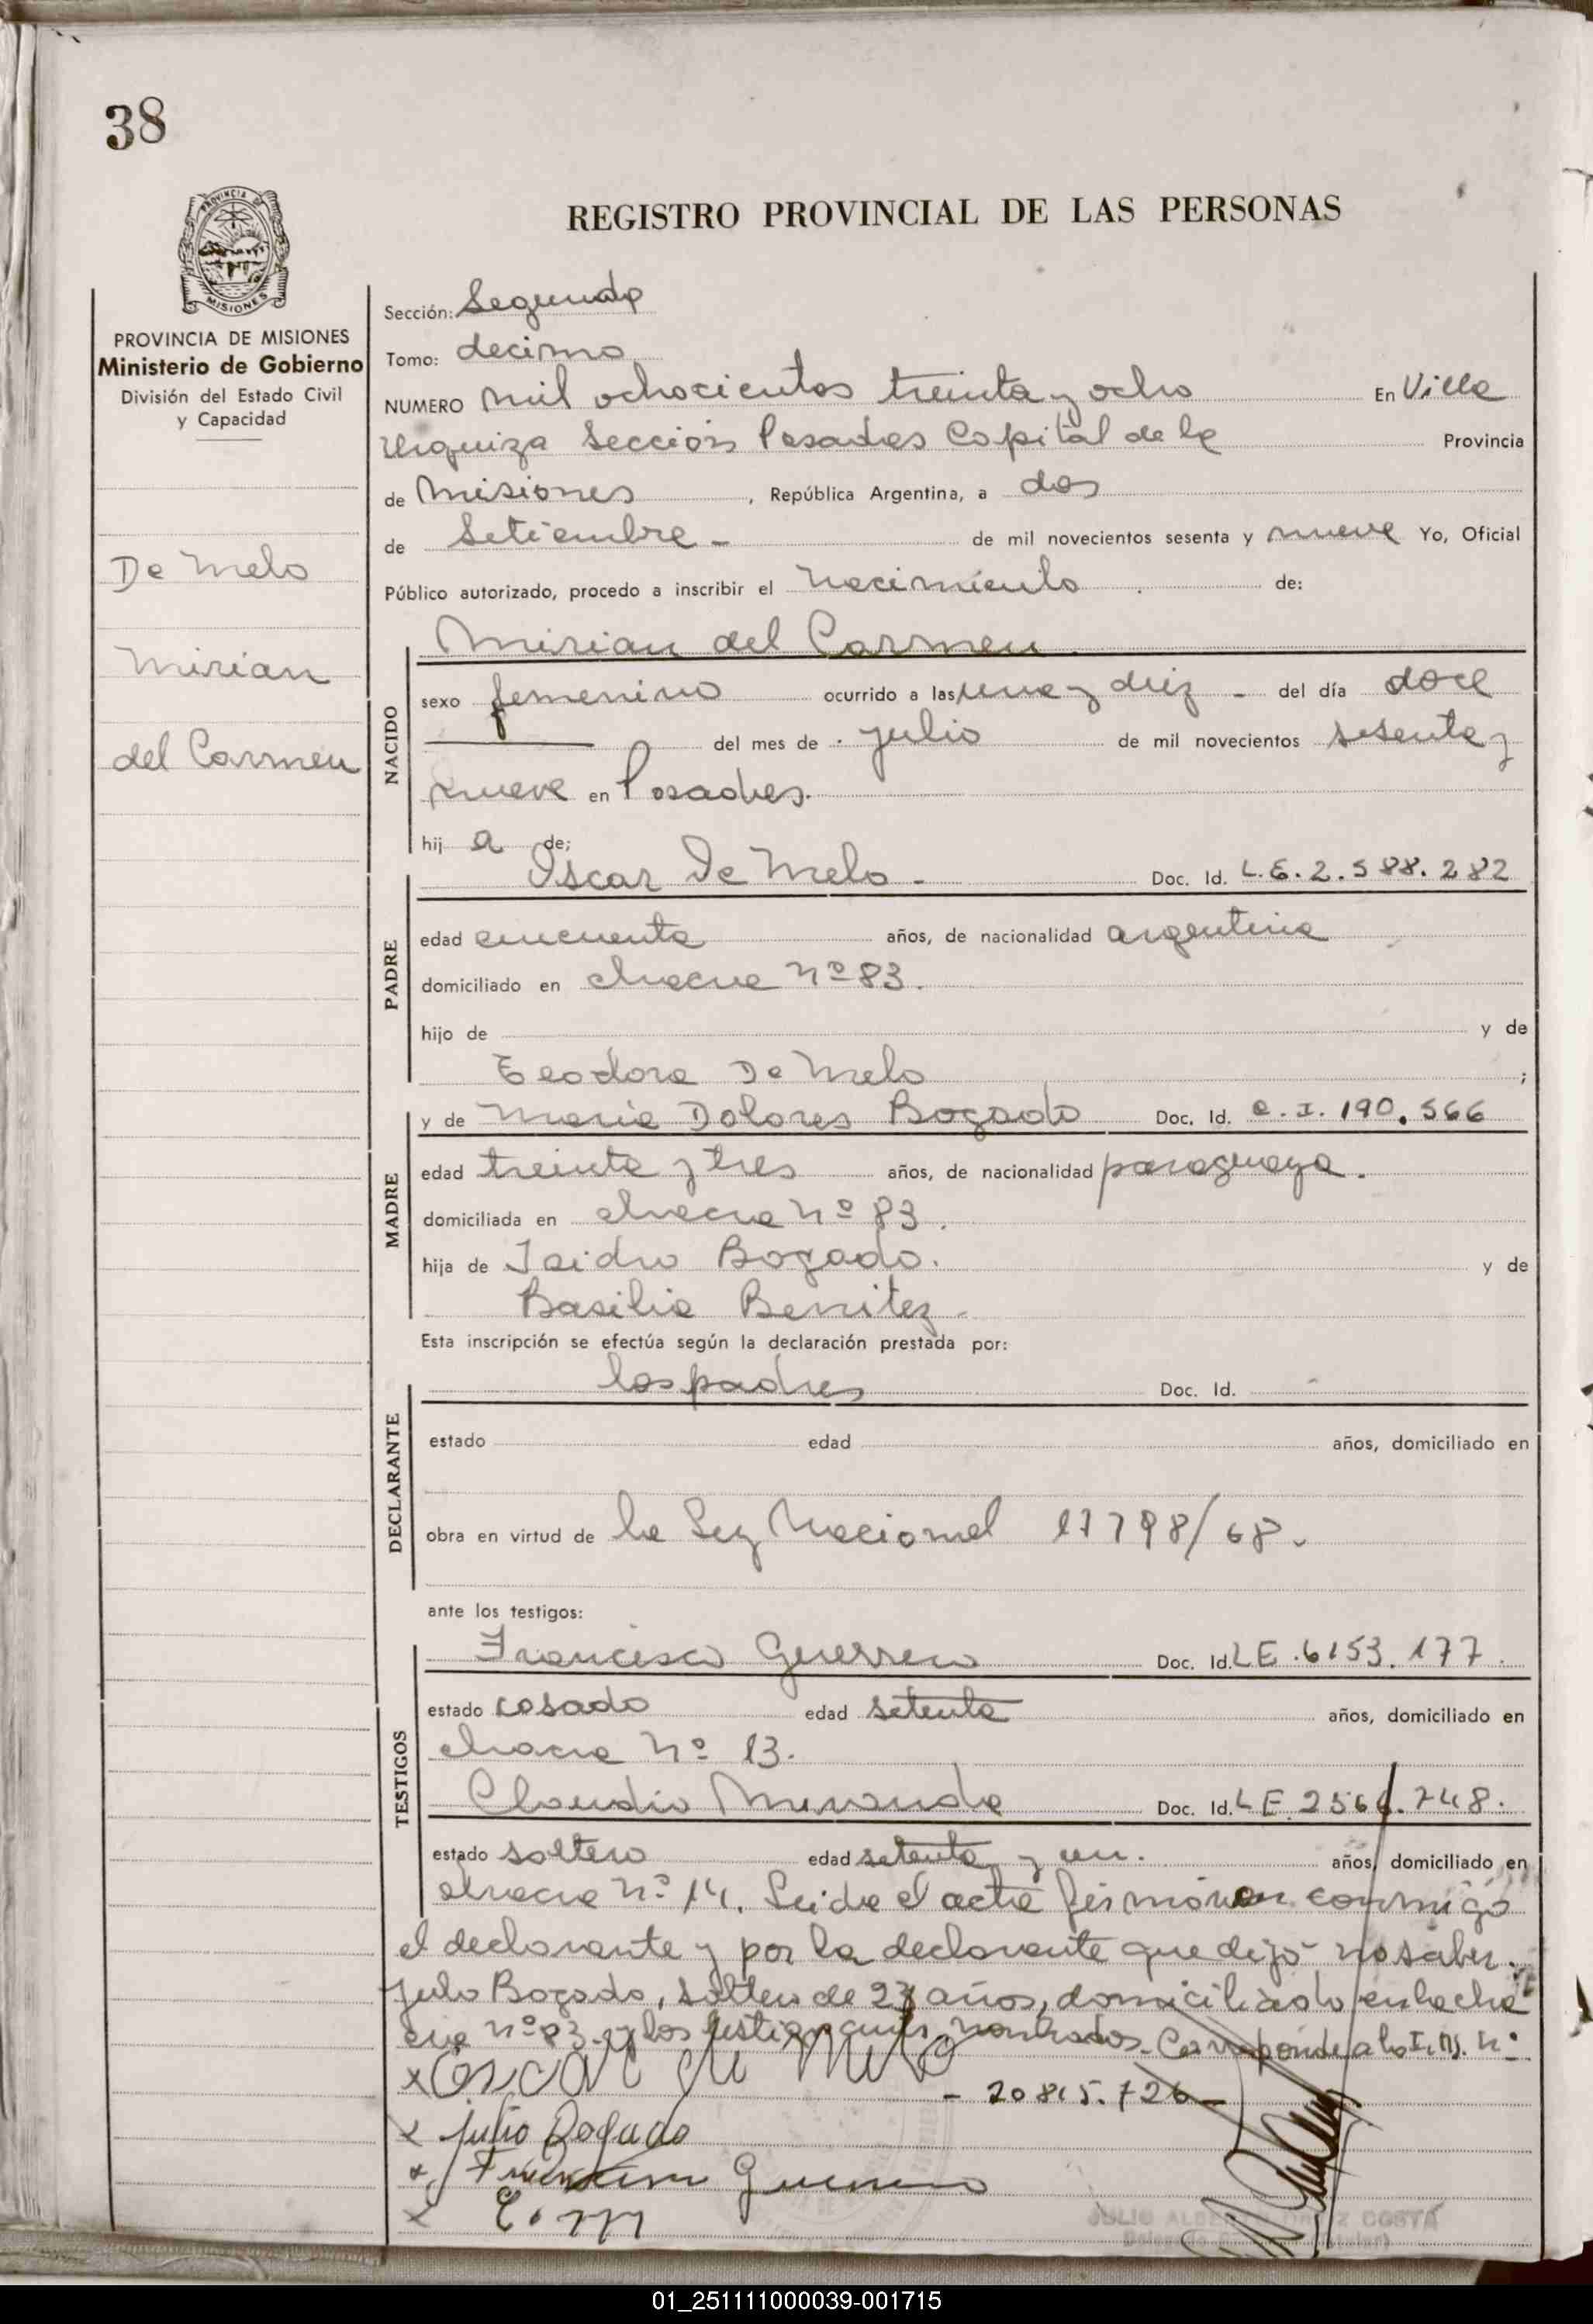 38
PROVINCIA DE
MISIONES
REGISTRO PROVINCIAL DE LAS PERSONAS
PROVINCIA DE MISIONES
Ministerio de Gobierno
División del Estado Civil
y Capacidad
De Melo
Mirian
del Carmen
Sección: Segunda
Tomo: decimo
NUMERO mil ochocientos treinta y ocho En Villa
Urquiza Sección Posadas Capital de la Provincia
de Misiones, República Argentina, a dos
de Setiembre - de mil novecientos sesenta y nueve Yo, Oficial
Público autorizado, procedo a inscribir el nacimiento de:
Mirian del Carmen
NACIDO
sexo femenino ocurrido a las una y diez - del día doce
del mes de julio de mil novecientos sesenta y
nueve en Posadas.
hij a de;
Oscar De Melo - Doc. Id. L.E. 2.588.282
PADRE
edad cincuenta años, de nacionalidad argentina
domiciliado en chacra nº 83.
hijo de y de
Teodora De Melo ;
y de Maria Dolores Bogado Doc. Id. C.I. 190.566
MADRE
edad treinta y tres años, de nacionalidad paraguaya.
domiciliada en chacra nº 83.
hija de Isidro Bogado. y de
Basilia Benitez.
Esta inscripción se efectúa según la declaración prestada por:
los padres Doc. Id.
DECLARANTE
estado edad años, domiciliado en
obra en virtud de la Ley Nacional 17798/68.
ante los testigos:
Francisco Guerrero Doc. Id. LE. 6153.177.
TESTIGOS
estado casado edad setenta años, domiciliado en
chacra nº 13.
Claudio Miranda Doc. Id. LE. 2566.748.
estado soltero edad setenta y un. años, domiciliado en
chacra nº 14. Leida el acta firmaron conmigo
el declarante y por la declarante que dijo no saber
Julio Bogado, soltero de 23 años, domiciliado en la cha
cra nº 83. y los testigos nombrados. Corresponde a la I.M. nº
x Oscar de Melo - 20815.726 -
x julio Bogado
x Francisco Guerrero
x C. M
JULIO ALBERTO COSTA
01_251111000039-001715